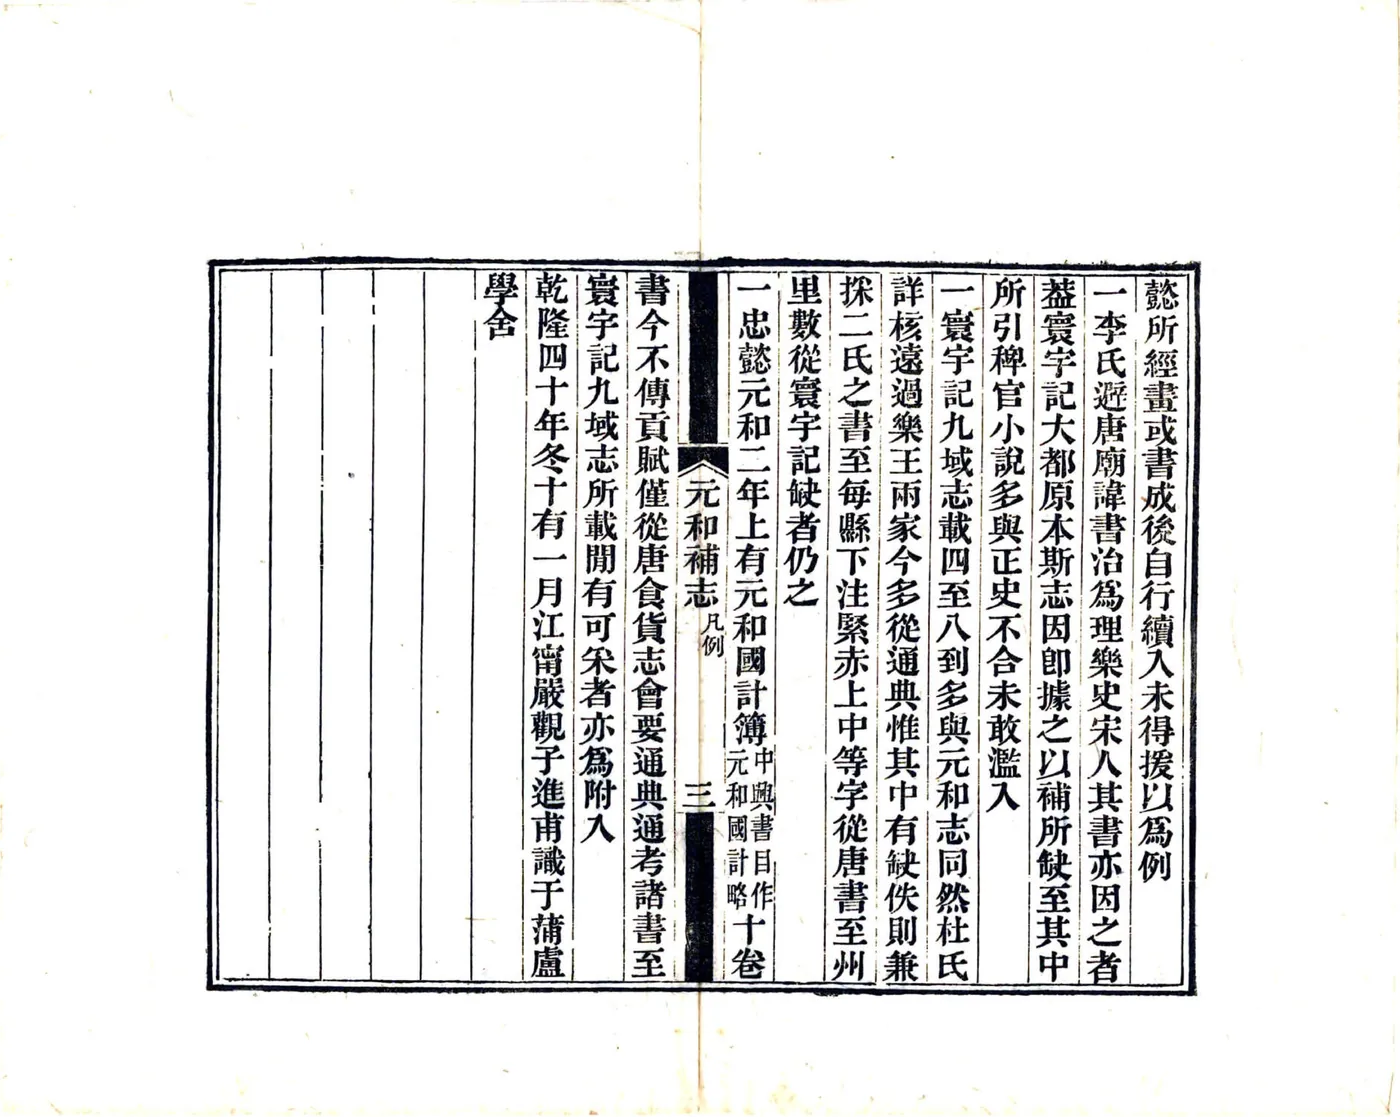 懿所經畫或書成後自行續入未得援以爲例
一李氏避唐廟諱書治爲理樂史宋人其書亦因之者
葢寰宇記大都原本斯志因卽據之以補所缺至其中
所引稗官小說多與正史不合未敢濫入
一寰宇記九域志載四至八到多與元和志同然杜氏
詳核遠過樂王兩家今多從通典惟其中有缺佚則兼
採二氏之書至每縣下注緊赤上中等字從唐書至州
里數從寰宇記缺者仍之
一忠懿元和二年上有元和國計簿中興書目作元和國計略十卷
元和補志 凡例 三
書今不傳貢賦僅從唐食貨志會要通典通考諸書至
寰宇記九域志所載閒有可采者亦爲附入
乾隆四十年冬十有一月江甯嚴觀子進甫識于蒲盧
學舍